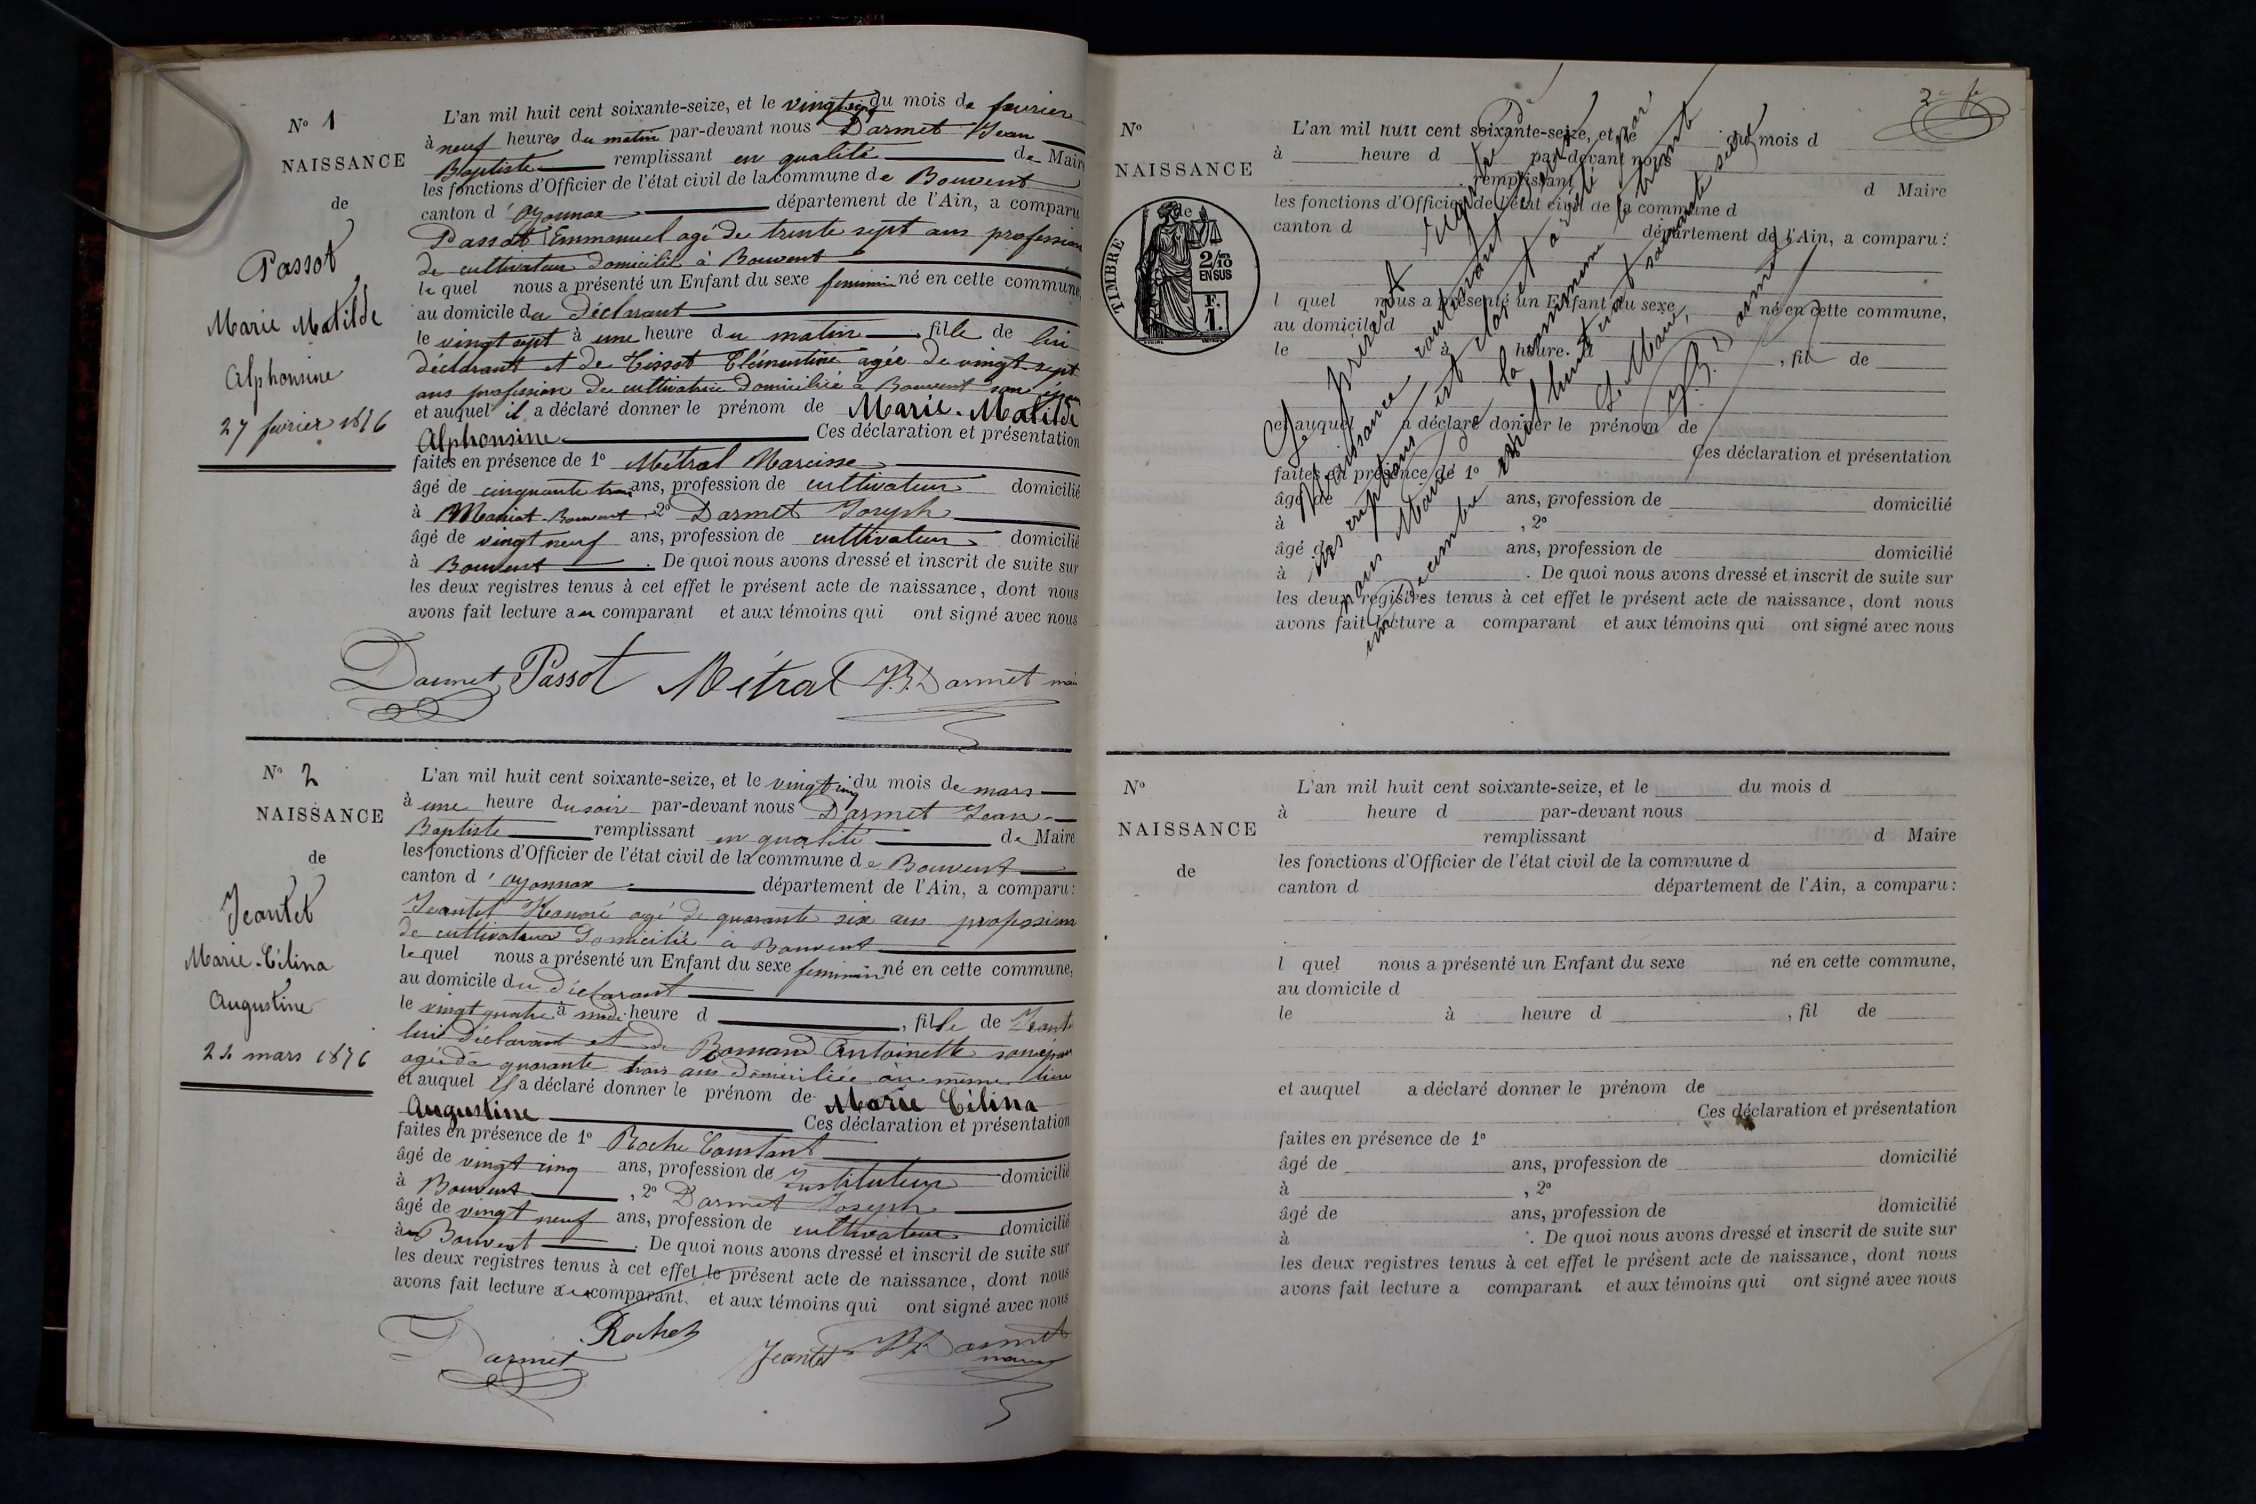 N° 1
NAISSANCE
de
Passot
Marie Matilde
Alphonsine
27 février 1876
L'an mil huit cent soixante-seize, et le vingt du mois de février
à neuf heures du matin par-devant nous Darmet Jean
Baptiste remplissant en qualité de Maire
les fonctions d'Officier de l'état civil de la commune de Bouvent
canton d'Oyonnax département de l'Ain, a comparu
Passot Emmanuel agé de trente sept ans profession
de cultivateur domicilié à Bouvent
le quel nous a présenté un Enfant du sexe feminin né en cette commune,
au domicile du Déclarant
le vingt sept à une heure du matin fille de lui
déclarant et de Tissot Clémentine agée de vingt-sept
ans profession de cultivatrice domiciliée à Bouvent son épouse
et auquel il a déclaré donner le prénom de Marie-Matilde
Alphonsine Ces déclaration et présentation
faites en présence de 1° Métral Narcisse
âgé de cinquante trois ans, profession de cultivateur domicilié
à Mahiat-Bouvent, 2° Darmet Joseph
âgé de vingt neuf ans, profession de cultivateur domicilié
à Bouvent. De quoi nous avons dressé et inscrit de suite sur
les deux registres tenus à cet effet le présent acte de naissance, dont nous
avons fait lecture au comparant et aux témoins qui ont signé avec nous
Darmet Passot Métral J.B. Darmet maire
N° 2
NAISSANCE
de
Jeantet
Marie-Célina
Augustine
24 mars 1876
L'an mil huit cent soixante-seize, et le vingt cinq du mois de mars
à une heure du soir par-devant nous Darmet Jean
Baptiste remplissant en qualité de Maire
les fonctions d'Officier de l'état civil de la commune de Bouvent
canton d'Oyonnax département de l'Ain, a comparu :
Jeantet Honoré agé de quarante six ans profession
de cultivateur domicilié à Bouvent
le quel nous a présenté un Enfant du sexe feminin né en cette commune,
au domicile du déclarant
le vingt quatre à midi heure d , fille de Jeantet
lui Déclarant et de Romand Antoinette son épouse
agée de quarante trois ans domiciliée au même lieu
et auquel il a déclaré donner le prénom de Marie Célina
Augustine Ces déclaration et présentation
faites en présence de 1° Roche Constant
âgé de vingt cinq ans, profession de Instituteur domicilié
à Bouvent, 2° Darmet Joseph
âgé de vingt neuf ans, profession de cultivateur domicilié
à Bouvent. De quoi nous avons dressé et inscrit de suite sur
les deux registres tenus à cet effet le présent acte de naissance, dont nous
avons fait lecture au comparant et aux témoins qui ont signé avec nous
Darmet Roche Jeantet J.B. Darmet
maire
N°
NAISSANCE
de
TIMBRE
2/10
EN SUS
F.
1.
L'an mil huit cent soixante-seize, et le du mois d
à heure d par-devant nous
remplissant d Maire
les fonctions d'Officier de l'état civil de la commune d
canton d département de l'Ain, a comparu :
l quel nous a présenté un Enfant du sexe né en cette commune,
au domicile d
le à heure d , fil de
et auquel a déclaré donner le prénom de
Ces déclaration et présentation
faites en présence de 1°
âgé de ans, profession de domicilié
à , 2°
âgé de ans, profession de domicilié
à . De quoi nous avons dressé et inscrit de suite sur
les deux registres tenus à cet effet le présent acte de naissance, dont nous
avons fait lecture a comparant et aux témoins qui ont signé avec nous
Le présent registre de
Naissance contenant deux
inscriptions est clos et arrêté par
nous Maire de la commune le trente
un Décembre mil huit cent soixante seize
Le Maire,
J.B. Darmet
N°
NAISSANCE
de
L'an mil huit cent soixante-seize, et le du mois d
à heure d par-devant nous
remplissant d Maire
les fonctions d'Officier de l'état civil de la commune d
canton d département de l'Ain, a comparu :
l quel nous a présenté un Enfant du sexe né en cette commune,
au domicile d
le à heure d , fil de
et auquel a déclaré donner le prénom de
Ces déclaration et présentation
faites en présence de 1°
âgé de ans, profession de domicilié
à , 2°
âgé de ans, profession de domicilié
à . De quoi nous avons dressé et inscrit de suite sur
les deux registres tenus à cet effet le présent acte de naissance, dont nous
avons fait lecture a comparant et aux témoins qui ont signé avec nous